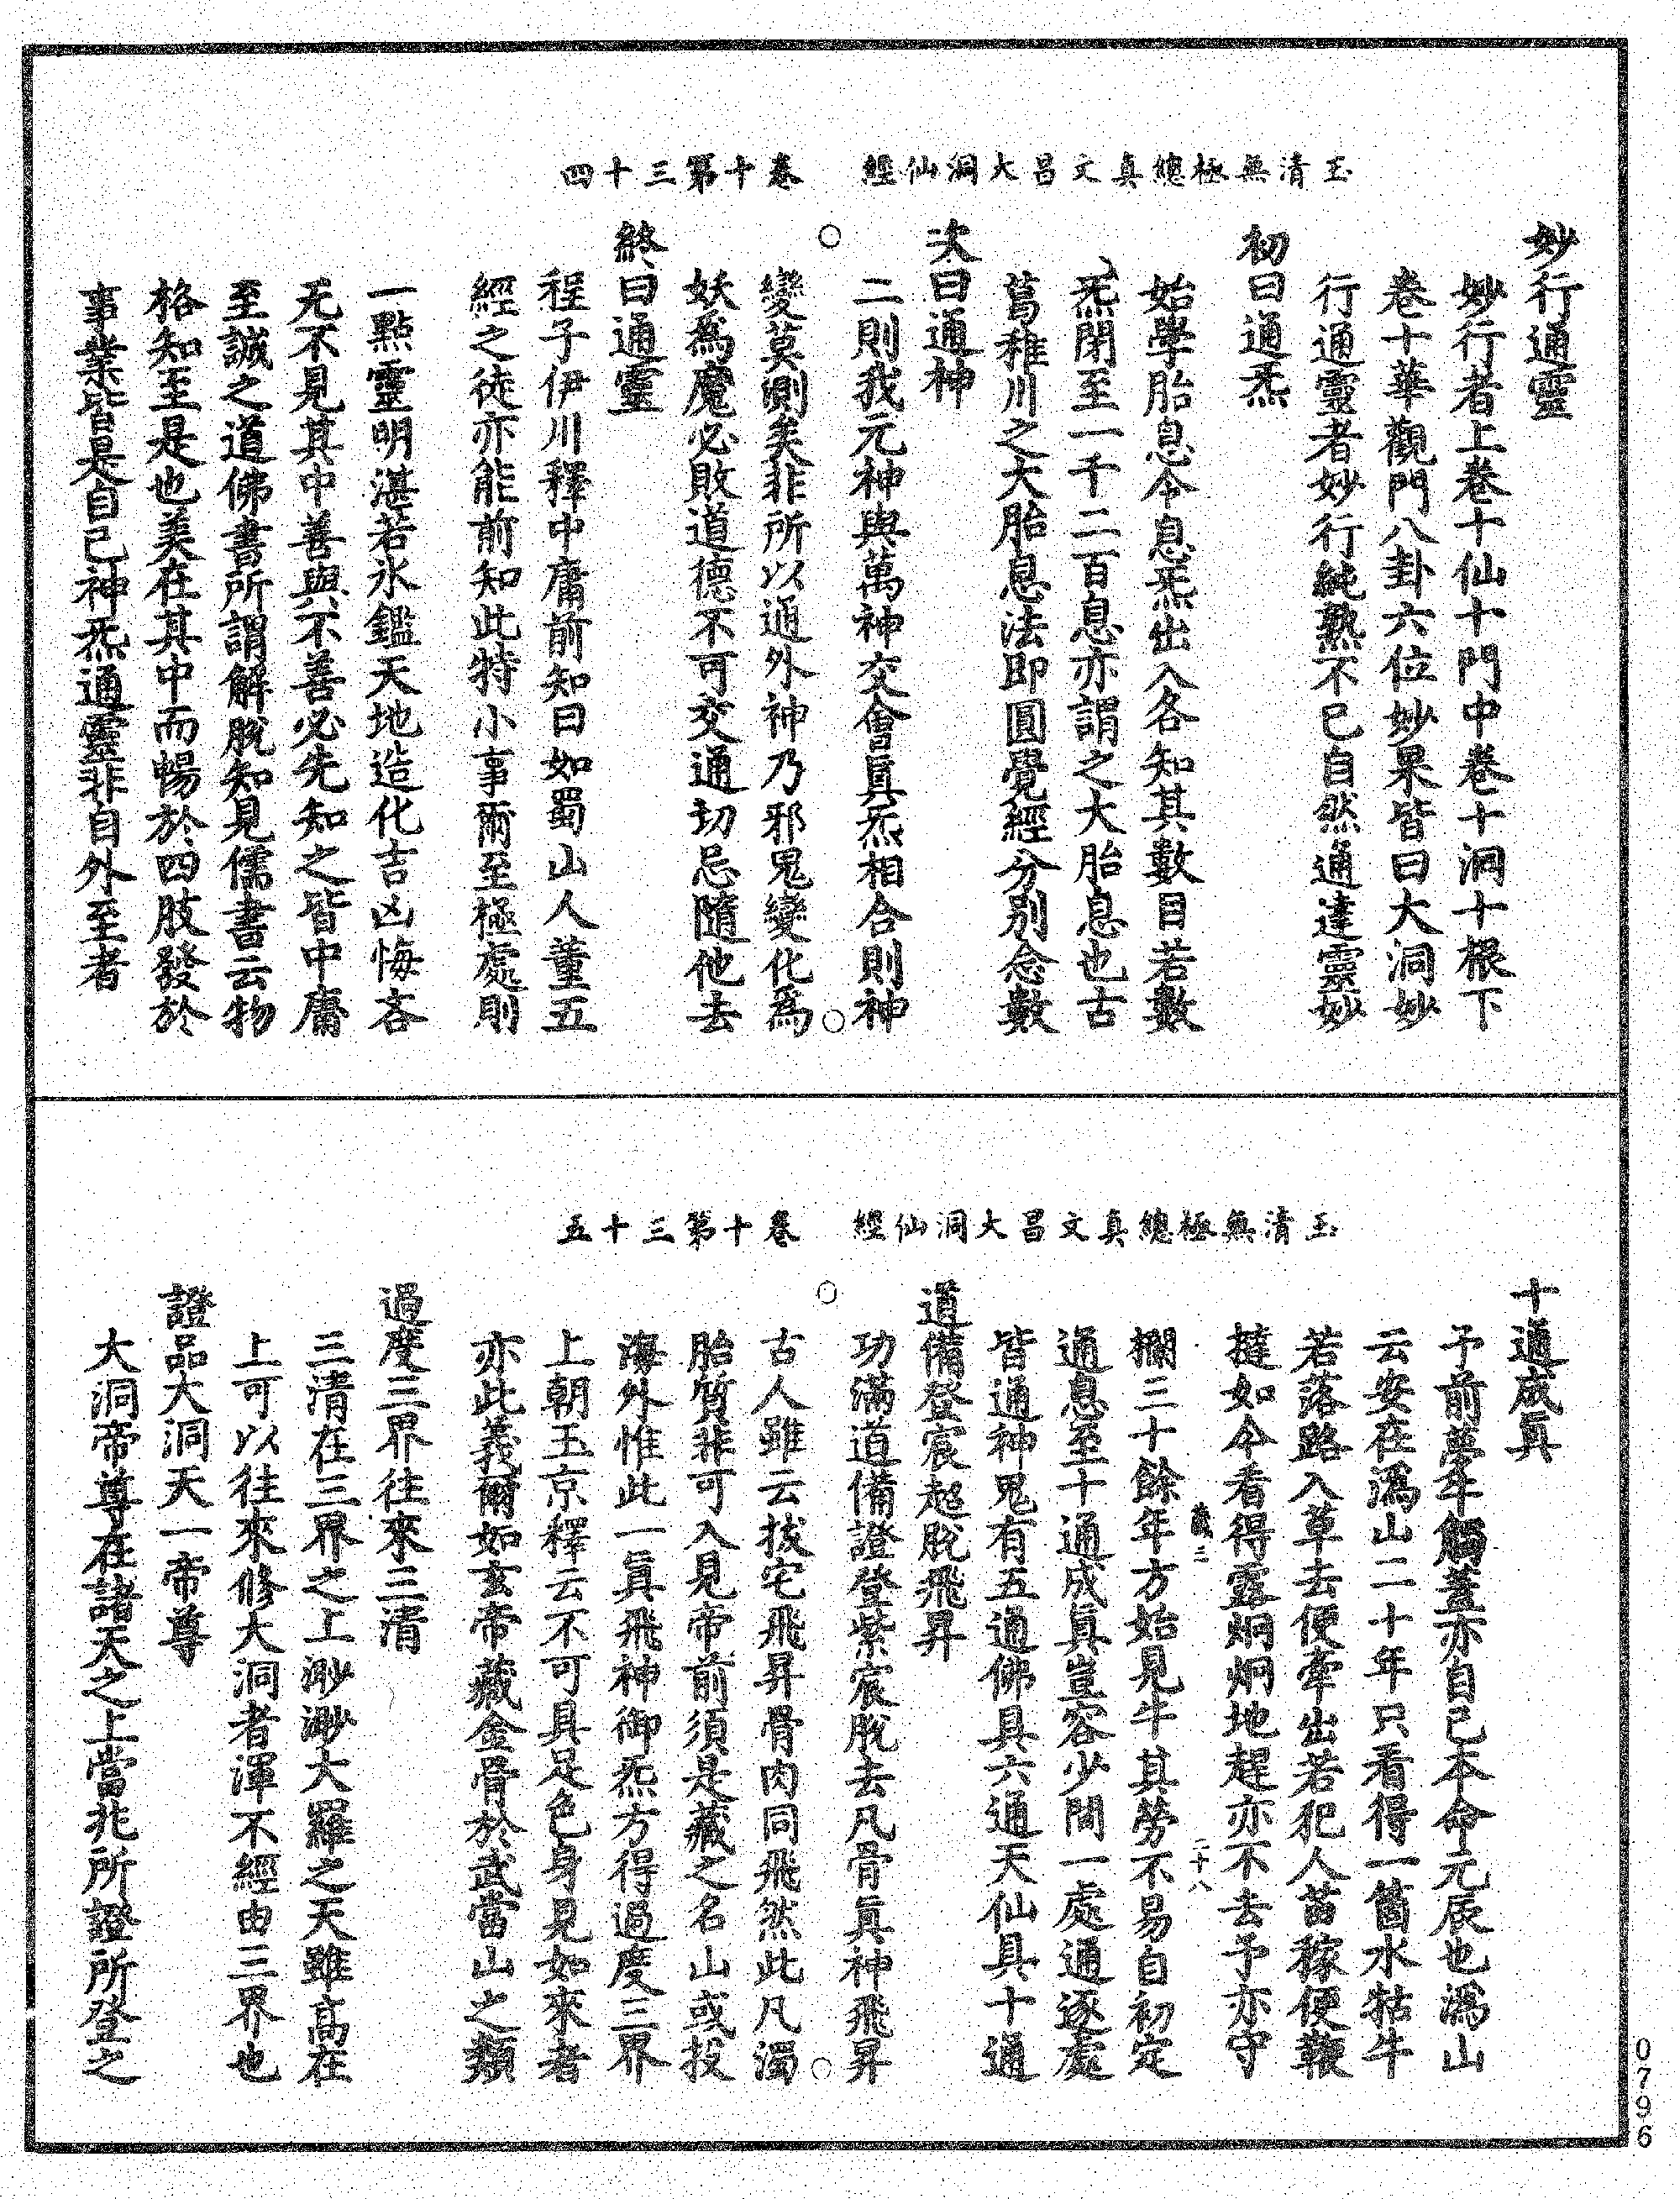 玉清無極總真文昌大洞仙經　卷十第三十四
妙行通靈
妙行者上卷十仙十門中卷十洞十根下
卷十華觀門八卦六位妙果皆曰大洞妙
行通靈者妙行純熟不已自然通達靈妙
初曰通炁
始學胎息令息炁出入各知其數目若數
炁閉至一千二百息亦謂之大胎息也古
葛稚川之大胎息法即圓覺經分別念數
次曰通神
二則我元神與萬神交會眞炁相合則神
變莫測矣非所以通外神乃邪鬼變化爲
妖爲魔必敗道德不可交通切忌隨他去
終曰通靈
程子伊川釋中庸前知曰如蜀山人董五
經之徒亦能前知此特小事爾至極處則
一點靈明湛若氷鑑天地造化吉凶悔吝
无不見其中善與不善必先知之皆中庸
至誠之道佛書所謂解脫知見儒書云物
格知至是也美在其中而暢於四肢發於
事業皆是自己神炁通靈非自外至者
玉清無極總真文昌大洞仙經　卷十第三十五
十通成眞
予前夢牛觸蓋亦自己本命元辰也潙山
云安在潙山二十年只看得一箇水牯牛
若落路入草去便牽出若犯人苗稼便鞭
撻如今看得露炯炯地趕亦不去予亦守
二十八
欄三十餘年方始見牛其勞不易自初定
通息至十通成眞豈容少間一處通逐處
皆通神鬼有五通佛具六通天仙具十通
道備登宸超脫飛昇
功滿道備證登紫宸脫去凡骨眞神飛昇
古人雖云拔宅飛昇骨肉同飛然此凡濁
胎質非可入見帝前須是藏之名山或投
海外惟此一眞飛神御炁方得過度三界
上朝玉京釋云不可具足色身見如來者
亦此義爾如玄帝藏金骨於武當山之類
過度三界往來三清
三清在三界之上渺渺大羅之天雖高在
上可以往來修大洞者渾不經由三界也
證品大洞天一帝尊
大洞帝尊在諸天之上當兆所證所登之
0796